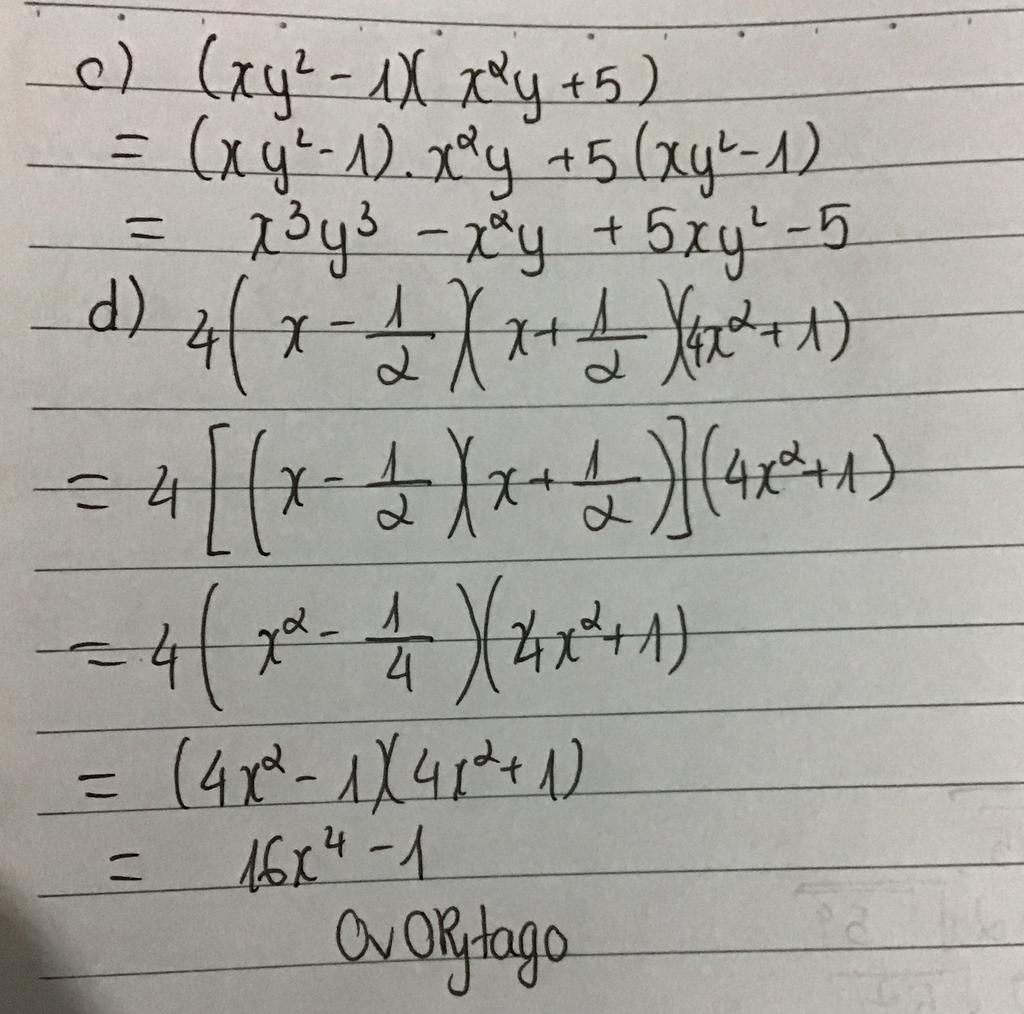 c) (xy² - 1)(x²y + 5)
= (xy² - 1).x²y + 5(xy² - 1)
= x³y³ - x²y + 5xy² - 5
d) 4(x - 1/2)(x + 1/2)(4x² + 1)
= 4[(x - 1/2)(x + 1/2)](4x² + 1)
= 4(x² - 1/4)(4x² + 1)
= (4x² - 1)(4x² + 1)
= 16x⁴ - 1